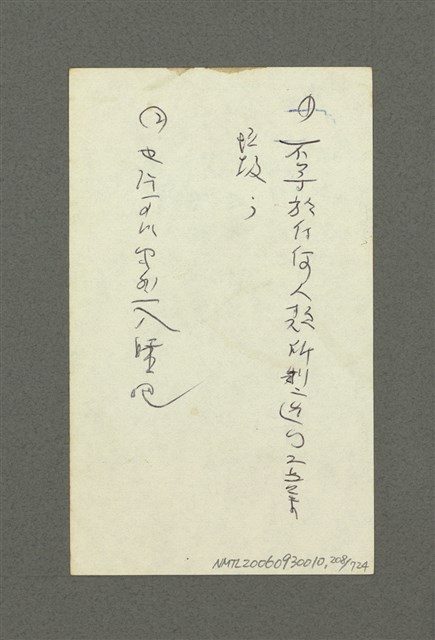 ① 不等於任何人類所製造的工業
垃圾；
② 也許可以安然入睡吧
NMTL20060930010, 208/724